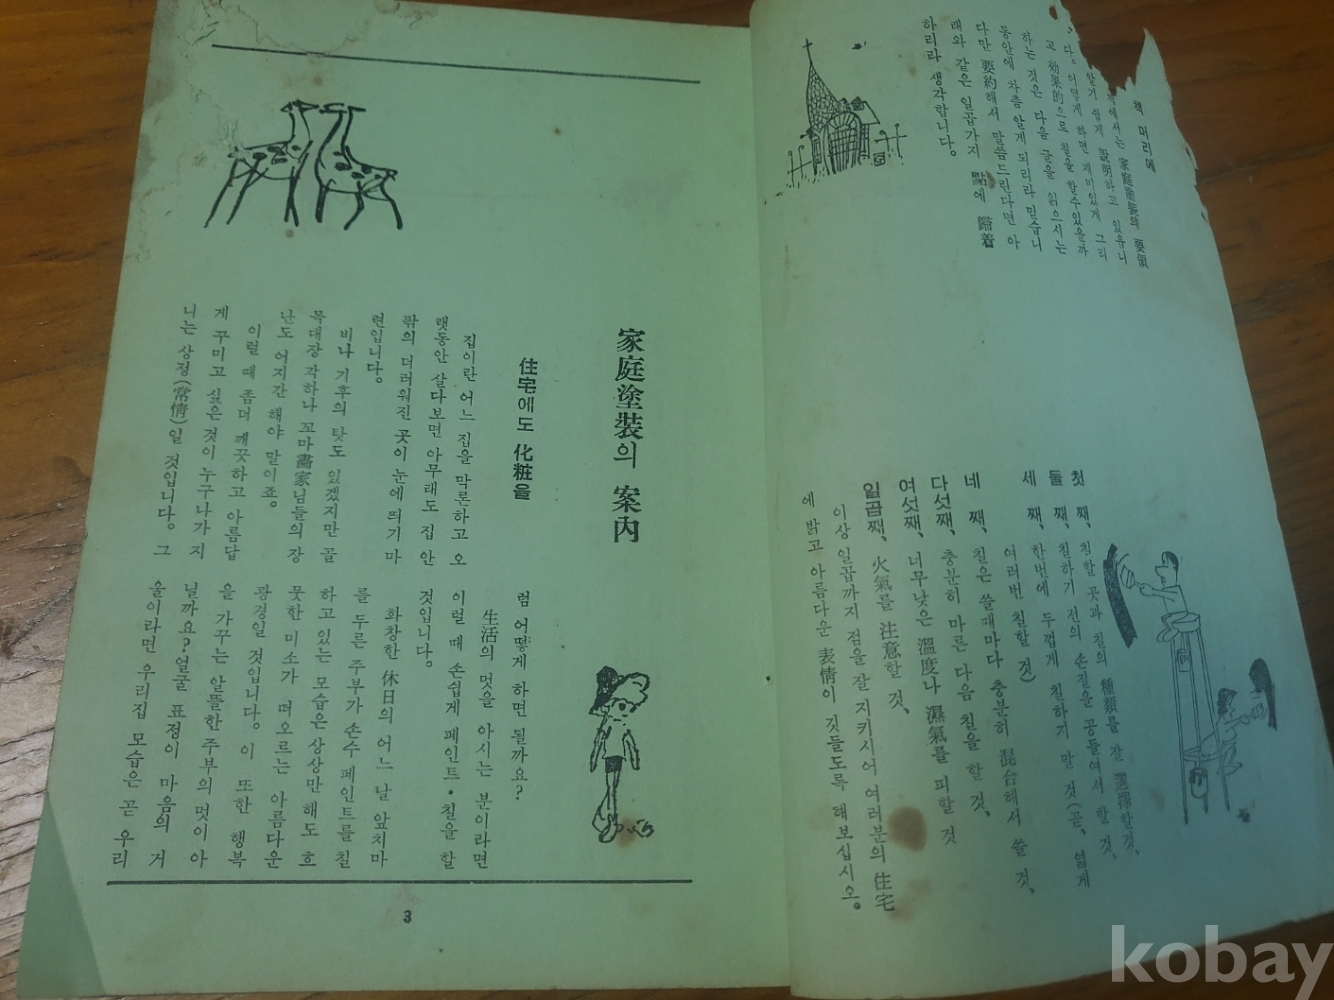 책 머리에
책에서는 家庭塗装의 要領
알기 쉽게 說明하고 있읍니
다. 어떻게 하면 재미있게 그리
고 効果的으로 칠을 할수있을까
하는 것은 다음 글을 읽으시는
동안에 차츰 알게 되리라 믿습니
다만 要約해서 말씀드린다면 아
래와 같은 일곱가지 點에 歸着
하리라 생각합니다.
첫 째, 칠할 곳과 칠의 種類를 잘 選擇할것,
둘 째, 칠하기 전의 손질을 공들여서 할 것,
세 째, 한번에 두껍게 칠하기 말 것(곧, 엷게
여러번 칠할 것)
네 째, 칠은 쓸때마다 충분히 混合해서 쓸 것,
다섯째, 충분히 마른 다음 칠을 할 것,
여섯째, 너무낮은 溫度나 濕氣를 피할 것
일곱째, 火氣를 注意할 것,
이상 일곱까지 점을 잘 지키시어 여러분의 住宅
에 밝고 아름다운 表情이 깃들도록 해보십시오。
家庭塗裝의 案內
住宅에도 化粧을
집이란 어느 집을 막론하고 오
랫동안 살다보면 아무래도 집 안
팎의 더러워진 곳이 눈에 띄기 마
련입니다。
비나 기후의 탓도 있겠지만 골
목대장 각하나 꼬마畵家님들의 장
난도 어지간 해야 말이죠。
이럴 때 좀더 깨끗하고 아름답
게 꾸미고 싶은 것이 누구나가 지
니는 상정(常情)일 것입니다。그
럼 어떻게 하면 될까요?
生活의 멋을 아시는 분이라면
이럴 때 손쉽게 페인트・칠을 할
것입니다。
화창한 休日의 어느 날 앞치마
를 두른 주부가 손수 페인트를 칠
하고 있는 모습은 상상만 해도 흐
뭇한 미소가 떠오르는 아름다운
광경일 것입니다。이 또한 행복
을 가꾸는 알뜰한 주부의 멋이 아
닐까요? 얼굴 표정이 마음의 거
울이라면 우리집 모습은 곧 우리
3
kobay